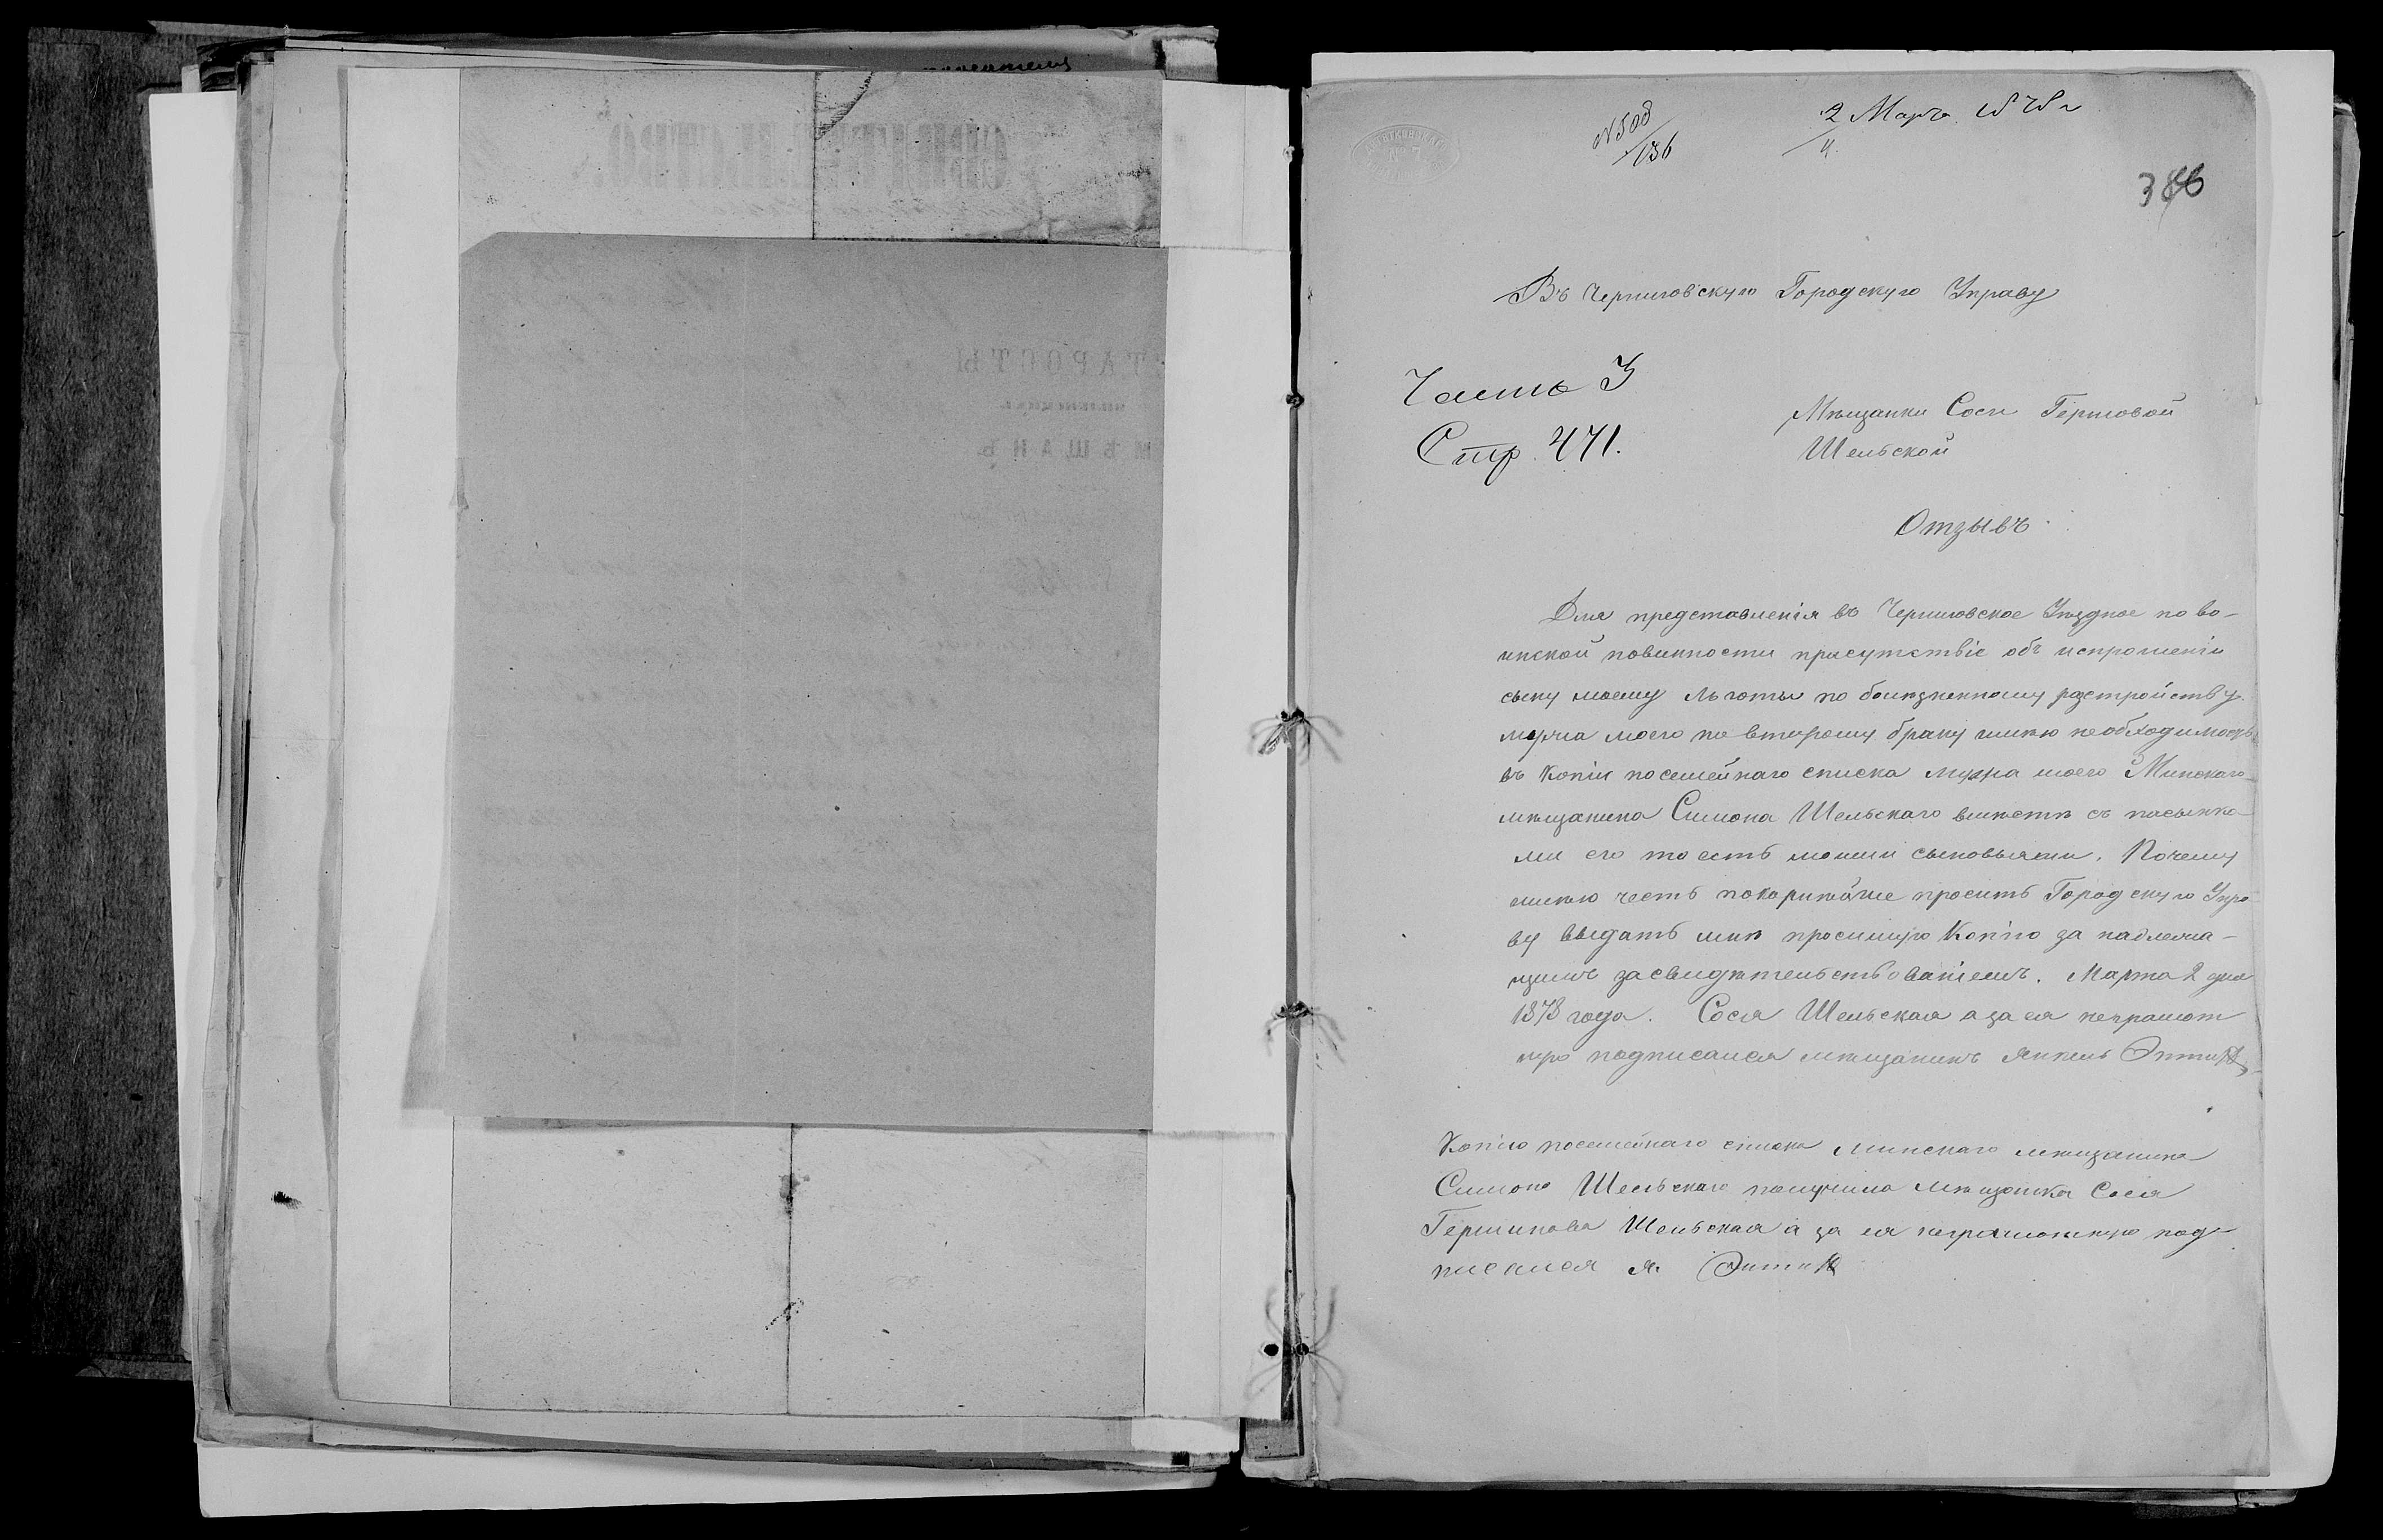 № 508
/136
2 Марта 1878 г
4.
386
Въ Черниговскую Городскую Управу
Часть 3
Стр. 471.
Мѣщанки Соси Гершовой
Шельской
Отзывъ
Для представленія въ Черниговское Уѣздное по во-
инской повинности присутствіе объ испрошеніи
сыну моему льготы по болѣзненному разстройству
мужа моего по второму браку имѣю необходимость
въ копіи посемейнаго списка мужа моего Минскаго
мѣщанина Симона Шельскаго вмѣстѣ съ пасынка
ми его то есть моими сыновьями. Почему
имѣю честь покорнѣйше просить Городскую Упра
ву выдать мнѣ просимую Копію за надлежа-
щимъ засвидѣтельствованіемъ. Марта 2 дня
1878 года. Сося Шельская а за ея неграмот
ную подписался мѣщанинъ Янкель
Копію посемейнаго списка минскаго мѣщанина
Симона Шельскаго получила мѣщанка Сося
Гершикова Шельская а за ея неграмотную под-
писался Я.
СВИДѢТЕЛЬСТВО.
СТАРОСТЫ
МѢЩАНЪ